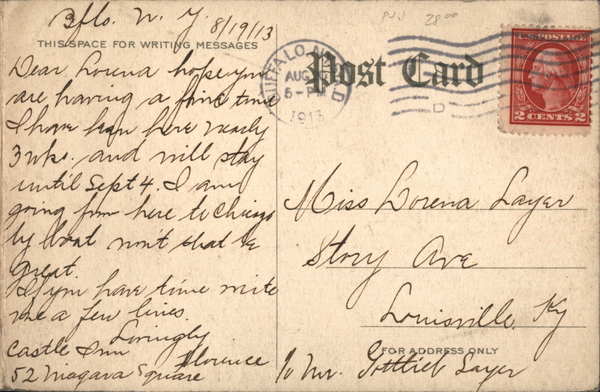 Bflo. N. Y. 8/19/13
THIS SPACE FOR WRITING MESSAGES
Dear Lorena hope you
are having a fine time
I have been here nearly
3 wks. and will stay
until Sept 4. I am
going from here to Chicago
by boat won't that be
great.
If you have time write
me a few lines.
Lovingly
Florence
Castle Inn
52 Niagara Square
28 00
BUFFALO, N.Y.
AUG
5-PM
1913
D
Post Card
U.S. POSTAGE
2 CENTS 2
Miss Lorena Layer
Story Ave
Louisville, Ky
FOR ADDRESS ONLY
c/o Mr. Gottlieb Layer